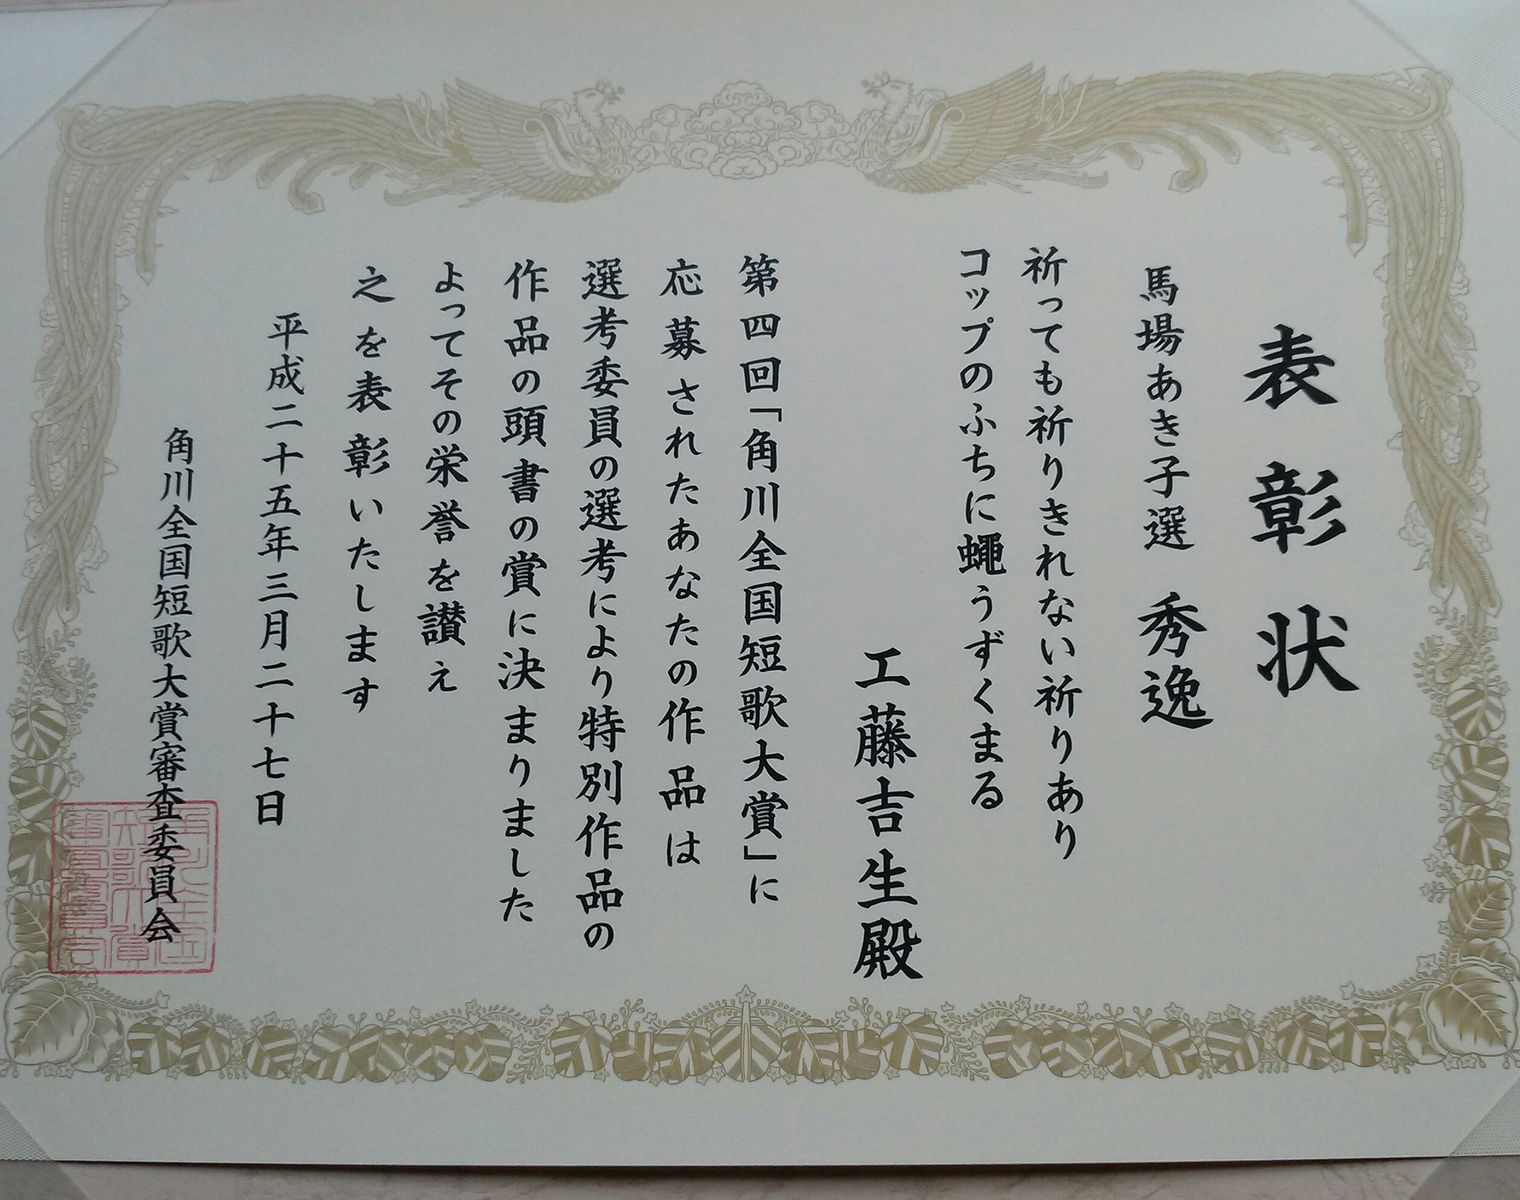 表彰状
馬場あき子選 秀逸
祈っても祈りきれない祈りあり
コップのふちに蠅うずくまる
工藤吉生殿
第四回「角川全国短歌大賞」に
応募されたあなたの作品は
選考委員の選考により特別作品の
作品の頭書の賞に決まりました
よってその栄誉を讃え
之を表彰いたします
平成二十五年三月二十七日
角川全国短歌大賞審査委員会